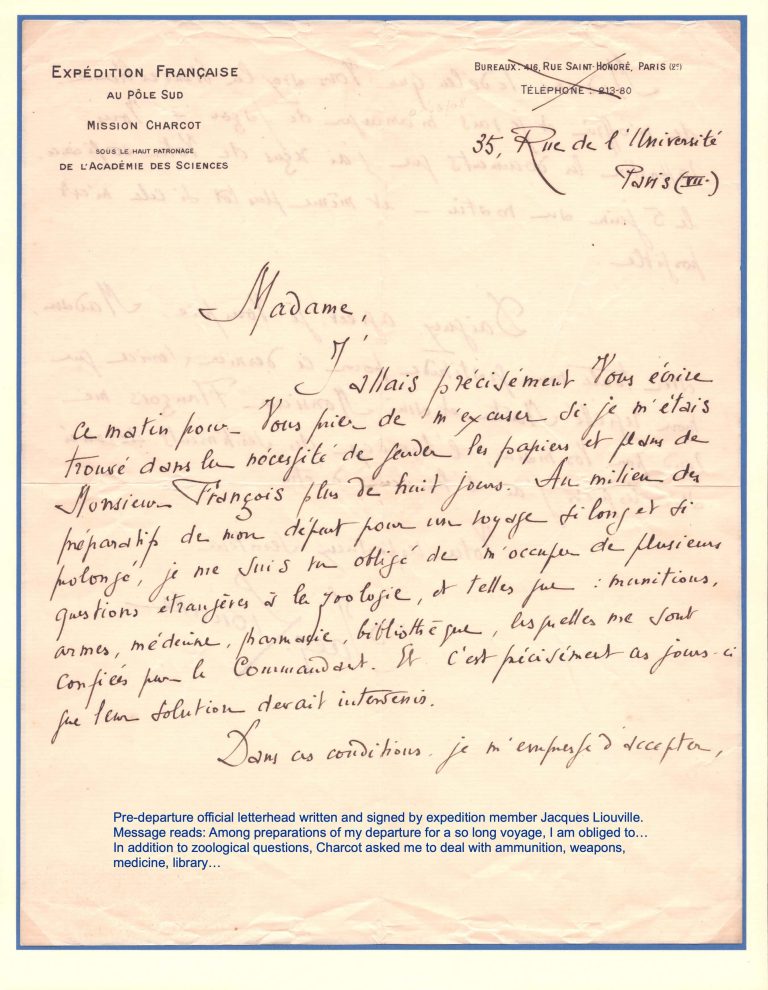 EXPÉDITION FRANÇAISE
AU PÔLE SUD
MISSION CHARCOT
SOUS LE HAUT PATRONAGE
DE L'ACADÉMIE DES SCIENCES
BUREAUX : 416, RUE SAINT-HONORÉ, PARIS (2e)
TÉLÉPHONE : 213-80
35, Rue de l'Université
Paris (VII.)
Madame,
J'allais précisément Vous écrire
ce matin pour Vous prier de m'excuser si je m'étais
trouvé dans la nécessité de garder les papiers et plans de
Monsieur François plus de huit jours. Au milieu des
préparatifs de mon départ pour un voyage si long et si
prolongé, je me suis vu obligé de m'occuper de plusieurs
questions étrangères à la zoologie, et telles que : munitions,
armes, médecine, pharmacie, bibliothèque, lesquelles me sont
confiées par le Commandant. Et c'est précisément ces jours-ci
que leur solution devait intervenir.
Dans ces conditions je m'empresse d'accepter,
Pre-departure official letterhead written and signed by expedition member Jacques Liouville.
Message reads: Among preparations of my departure for a so long voyage, I am obliged to…
In addition to zoological questions, Charcot asked me to deal with ammunition, weapons,
medicine, library…